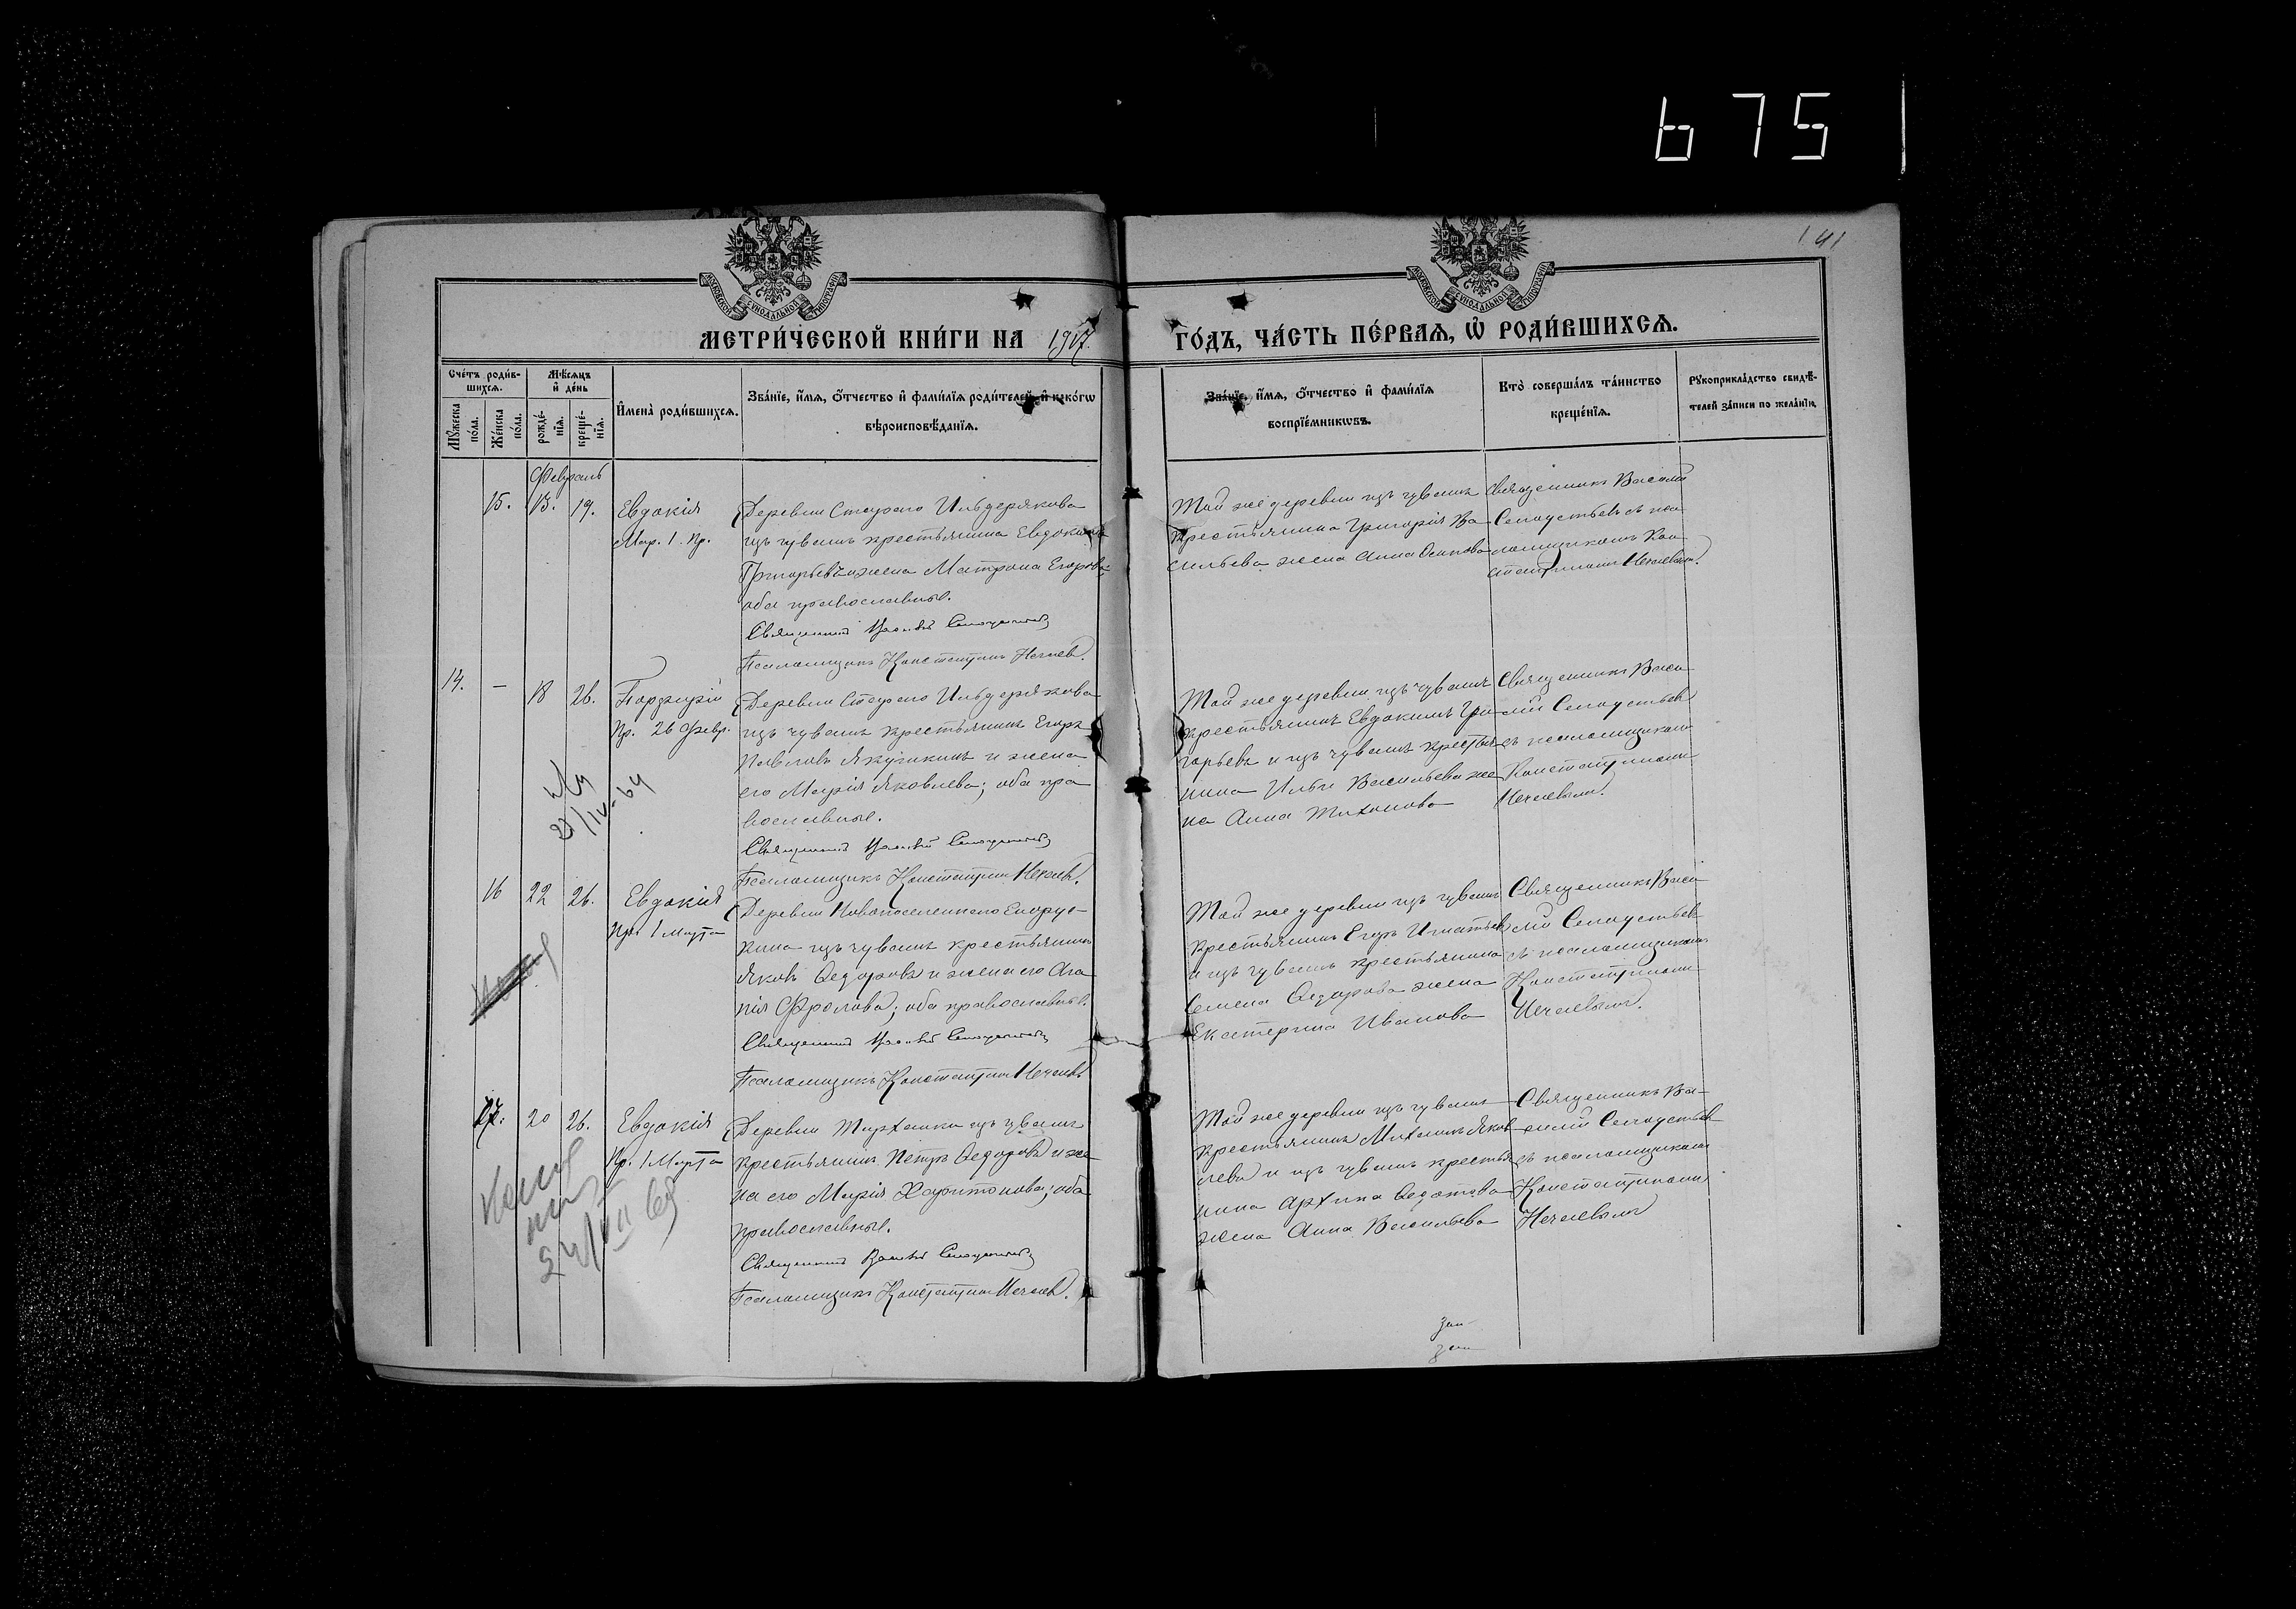 675
141
МОСКОВСКОЙ СѴНОДАЛЬНОЙ ТИПОГРАФІИ
МОСКОВСКОЙ СѴНОДАЛЬНОЙ ТИПОГРАФІИ
МЕТРИ́ЧЕСКОЙ КНИ́ГИ НА 1917
ГО́ДЪ, ЧА́СТЬ ПЕ́РВАѦ, Ѡ҆ РОДИ́ВШИХСѦ.
Сче́тъ роди́в-
шихсѧ.
Мꙋ́жеска по́ла.
Же́нска по́ла.
Мѣ́сѧцъ и҆ де́нь
рожде́-нїѧ.
креще́-нїѧ.
И҆мена̀ роди́вшихсѧ.
Зва́нїе, и҆́мѧ, ѻ҆́тчество и҆ фами́лїѧ роди́телей, и҆ како́гѡ
вѣроисповѣ́данїѧ.
Зва́нїе, и҆́мѧ, ѻ҆́тчество и҆ фами́лїѧ
воспрїе́мникѡвъ.
Кто̀ соверша́лъ та́инство
креще́нїѧ.
Рꙋкоприкла́дство свидѣ́-
телей за́писи по жела́нїю.
Февраль
15. 13. 19.
Евдокія
Мар. 1. Пр.
Деревни Стараго Ильдерякова
изъ чувашъ крестьянина Евдокимъ
Григорьевъ и жена Матрона Егорова;
оба православные.
Священникъ
Псаломщикъ Константинъ Нечаевъ.
Той же деревни изъ чувашъ
крестьянина Григорія Ва-
сильева жена Анна Осипова
Священникъ Василій
съ пса-
ломщикомъ Кон-
стантиномъ Нечаевымъ.
14. — 18 26.
Порфирій
Пр. 26 Февр.
Деревни Стараго Ильдерякова
изъ чувашъ крестьянинъ Егоръ
Павловъ Якучкинъ и жена
его Марія Яковлева; оба пра
вославные.
Священникъ
Псаломщикъ Константинъ Нечаевъ.
Той же деревни изъ чувашъ
крестьянинъ Евдокимъ Гри-
горьевъ и изъ чувашъ крестья
нина Ильи Васильева же
на Анна Тихонова
Священникъ Васи
лій
съ псаломщикомъ
Константиномъ
Нечаевымъ.
16 22 26.
Евдокія
Пр. 1 Марта
Деревни Новопоселеннаго
кина изъ чувашъ крестьянинъ
Яковъ Ѳедоровъ и жена его Ага
пія Фролова; оба православные.
Священникъ
Псаломщикъ Константинъ Нечаевъ
Той же деревни изъ чувашъ
крестьянинъ Егоръ Игнатьевъ
и изъ чувашъ крестьянина
Семена Ѳедорова жена
Екатерина Иванова
Священникъ Васи
лій
съ псаломщикомъ
Константиномъ
Нечаевымъ.
17. 20 26.
Евдокія
Пр. 1 Марта
Деревни Тарханки изъ чувашъ
крестьянинъ Петръ Ѳедоровъ и же
на его Марія Харитонова; оба
православные.
Священникъ
Псаломщикъ Константинъ Нечаевъ.
Той же деревни изъ чувашъ
крестьянинъ Михаилъ Яков-
левъ и изъ чувашъ крестья
нина Архипа Ѳедотова
жена Анна Васильева
Священникъ Ва-
силій
съ псаломщикомъ
Константиномъ
Нечаевымъ